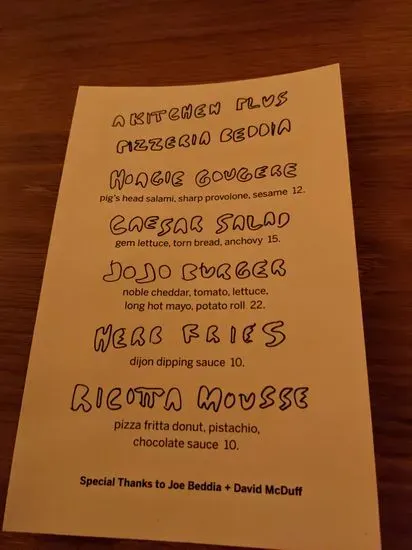 A KITCHEN PLUS
PIZZERIA BEDDIA
HOAGIE GOUGERE
pig's head salami, sharp provolone, sesame 12.
CAESAR SALAD
gem lettuce, torn bread, anchovy 15.
JOJO BURGER
noble cheddar, tomato, lettuce,
long hot mayo, potato roll 22.
HERB FRIES
dijon dipping sauce 10.
RICOTTA MOUSSE
pizza fritta donut, pistachio,
chocolate sauce 10.
Special Thanks to Joe Beddia + David McDuff